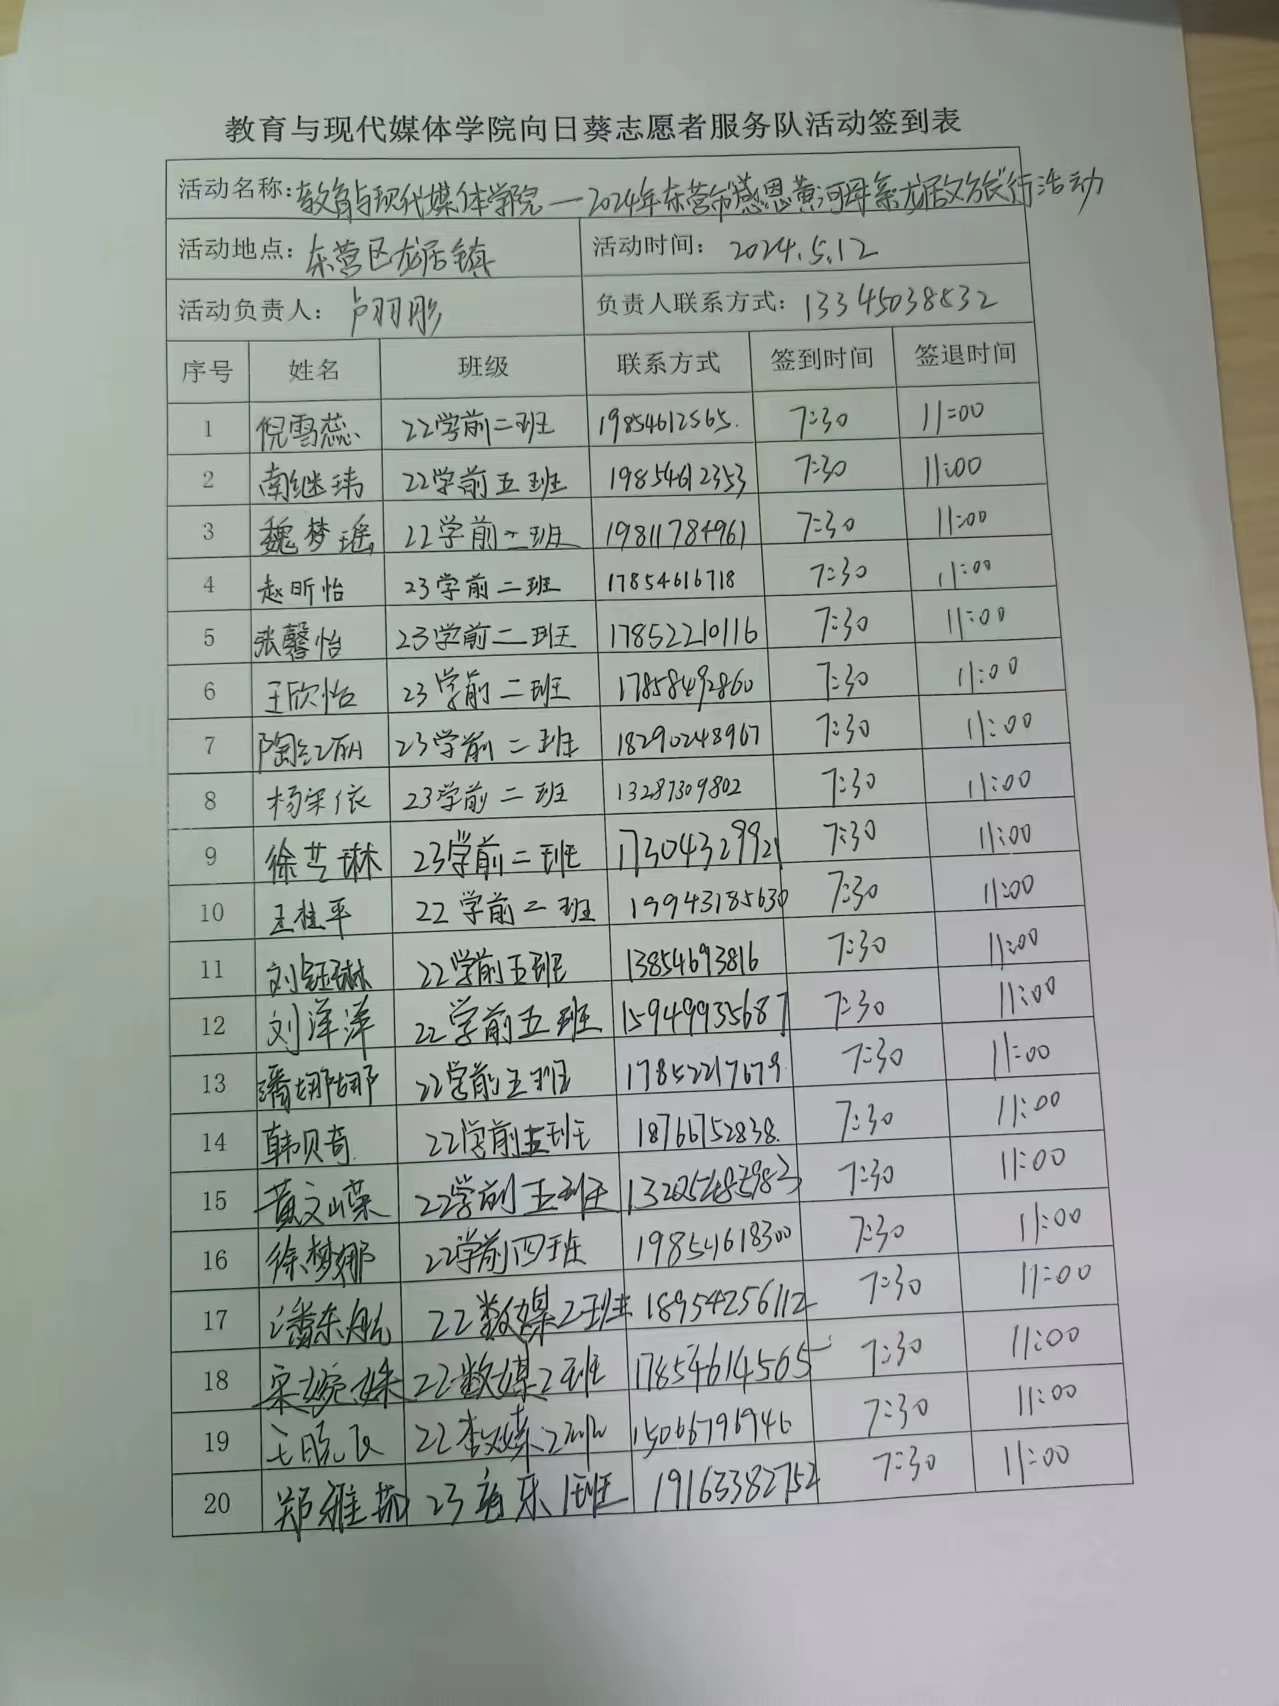 教育与现代媒体学院向日葵志愿者服务队活动签到表
活动名称：教育与现代媒体学院—2024年东营市"感恩黄河母亲龙居文旅行活动
活动地点：东营区龙居镇 活动时间：2024.5.12
活动负责人：卢羽彤 负责人联系方式：13345038832
序号 姓名 班级 联系方式 签到时间 签退时间
1 倪雪蕊 22学前二班 19854612565. 7:30 11:00
2 南继玮 22学前五班 19854612353 7:30 11:00
3 魏梦瑶 22学前二班 19811784961 7:30 11:00
4 赵昕怡 23学前二班 17854616718 7:30 11:00
5 张馨怡 23学前二班 17852210116 7:30 11:00
6 王欣怡 23学前二班 17858492860 7:30 11:00
7 陶红丽 23学前二班 18290248967 7:30 11:00
8 杨梁依 23学前二班 13287309802 7:30 11:00
9 徐艺琳 23学前二班 17304329921 7:30 11:00
10 王桂平 22学前二班 19943185630 7:30 11:00
11 刘钰琳 22学前五班 13854693816 7:30 11:00
12 刘洋洋 22学前五班 15949935687 7:30 11:00
13 潘娜娜 22学前五班 17852217679 7:30 11:00
14 韩贝奇 22学前五班 18766752838. 7:30 11:00
15 黄文荣 22学前五班 7:30 11:00
16 徐梦娜 22学前四班 19854618300 7:30 11:00
17 潘东航 22数媒2班 18954256112 7:30 11:00
18 宋婉姝 22数媒2班 17854614565 7:30 11:00
19 王晓飞 22数媒2班 15066796946 7:30 11:00
20 郑雅茹 23音乐1班 19163382752 7:30 11:00